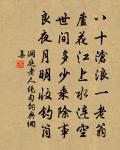 八十滄浪一老翁
蘆花江上水連空
世間多少乘除事
良夜月明收釣筒
洞庭老人绝句詞典網
集